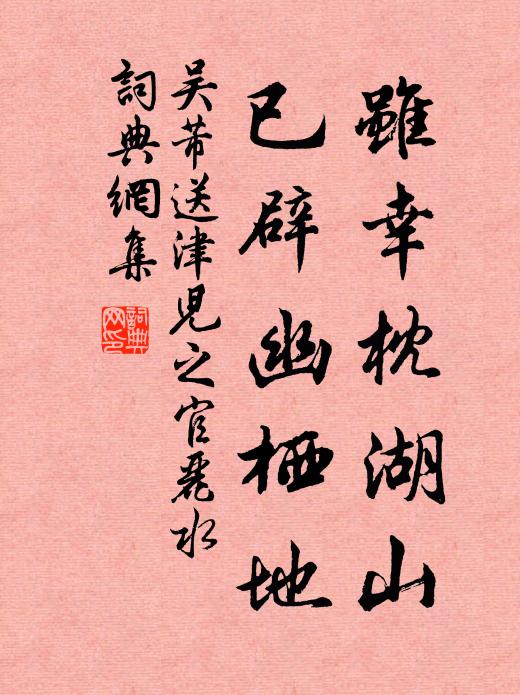 雖幸枕湖山
已辟幽栖地
吳芾送津兒之官麗水
詞典網集
詞典网印